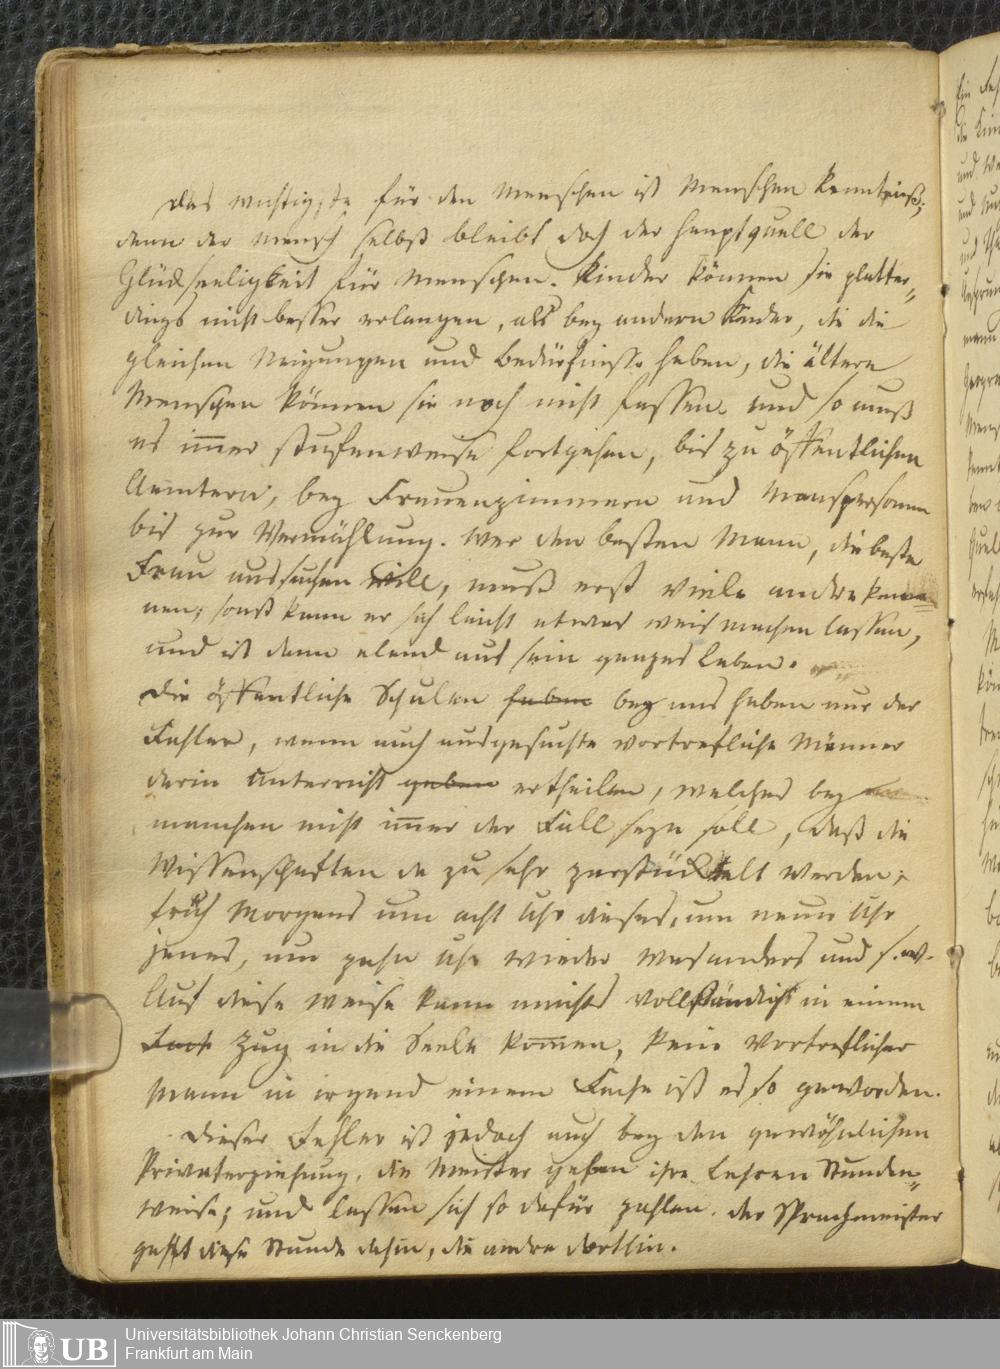 Das wichtigste für den Menschen ist Menschen Kenntniß;
denn der Mensch selbst bleibt doch der Hauptquell der
Glückseeligkeit für Menschen. Kinder können sie platter-
dings nicht besser erlangen, als bey andern Kinder, die die
gleichen Neigungen und Bedürfnisse haben, die ältere
Menschen können sie noch nicht fassen. und so muß
es im̅er stufenweise fortgehen, bis zu öffentlichen
Aemtern, bey Frauenzimmern und Manspersonen
bis zur Vermählung. Wer den besten Mann, die beste
Frau aussuchen will, muß erst viele andre kenn-
nen; sonst kann er sich leicht etwas weis machen lassen,
und ist dann elend auf sein ganzes Leben.
Die öffentliche Schulen haben bey uns haben nur den
Fehler, wenn auch ausgesuchte vortrefliche Männer
darin Unterricht geben ertheilen, welches bey
manchen nicht im̅er der Fall seyn soll, daß die
Wissenschaften da zu sehr zerstückelt werden;
früh Morgens um acht Uhr dieses, um neun Uhr
jenes, um zehn Uhr wieder was anders und s. w.
Auf diese Weise kann nichts vollständig in einem
Zug in die Seele kom̅en, kein Vortreflicher
Mann in irgend einem Fache ist es so geworden.
Dieser Fehler ist jedoch auch bey den gewöhnlichen
Privaterziehung. die Meister geben ihre Lehren Stunden-
weise; und lassen sich so dafür zahlen. der Sprachmeister
geht diese Stunde dahin, die andre dorthin.
Universitätsbibliothek Johann Christian Senckenberg
Frankfurt am Main
UB